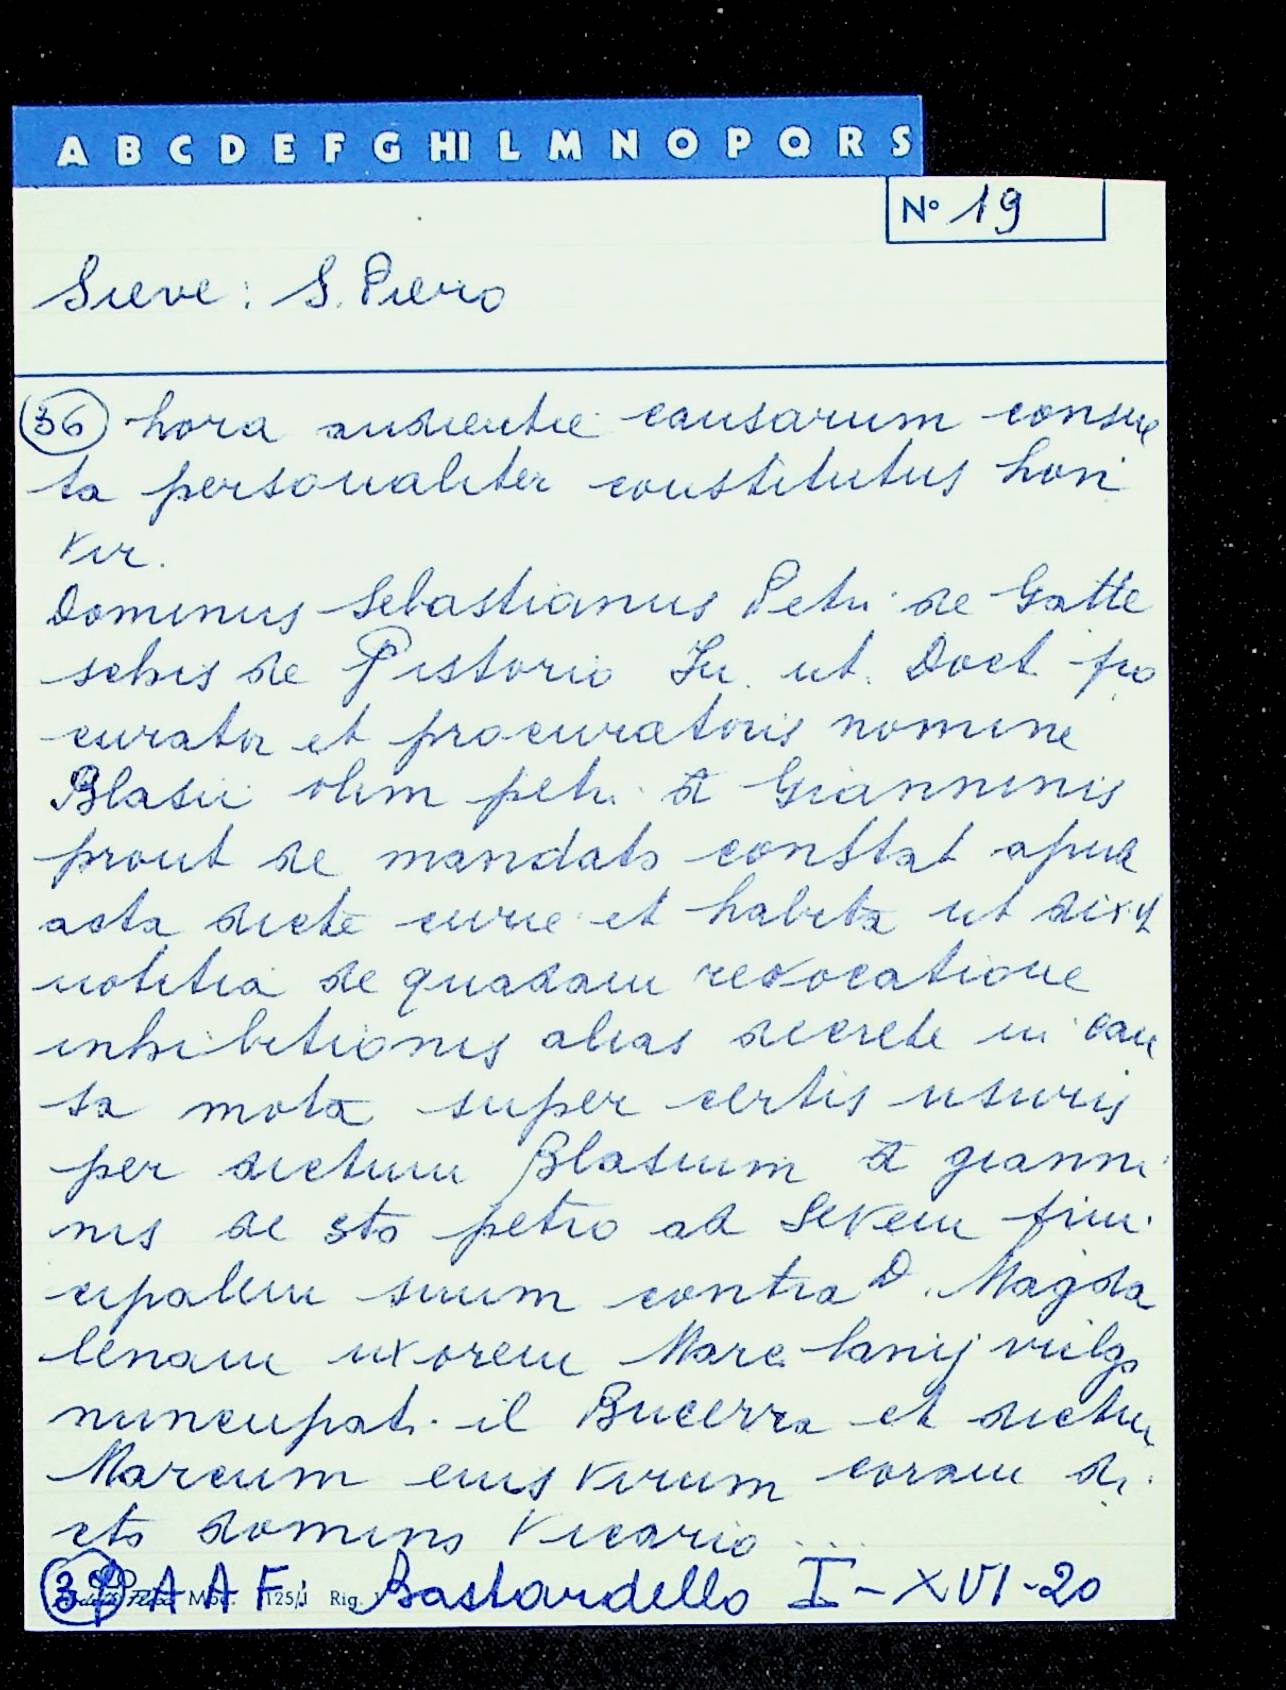 A B C D E F G HI L M N O P Q R S
Nº 19
Sieve: S. Piero
36 hora audientie causarum consue
ta personaliter constitutus hon
vir.
Dominus Sebastianus Petri de Gatte
schis de Pistorio Iu. ut. Doct pro
curator et procuratoris nomine
Blasii olim petri de Gianninis
prout de mandato constat apud
acta dicte curie et habita ut dixit
notitia de quadam revocatione
inhibitionis alias decrete in cau
sa mota super certis usuris
per dictum Blasium de gianni
nis de sto petro ad Sevem prin
cipalem suum contra D. Magda
lenam uxorem Marci lanij vulgo
nuncupati il Bucerra et dictum
Marcum eius virum coram di
cto domino Vicario ...
37 A A F: Bastardello I-XVI-20
Mod. 125/1 Rig.